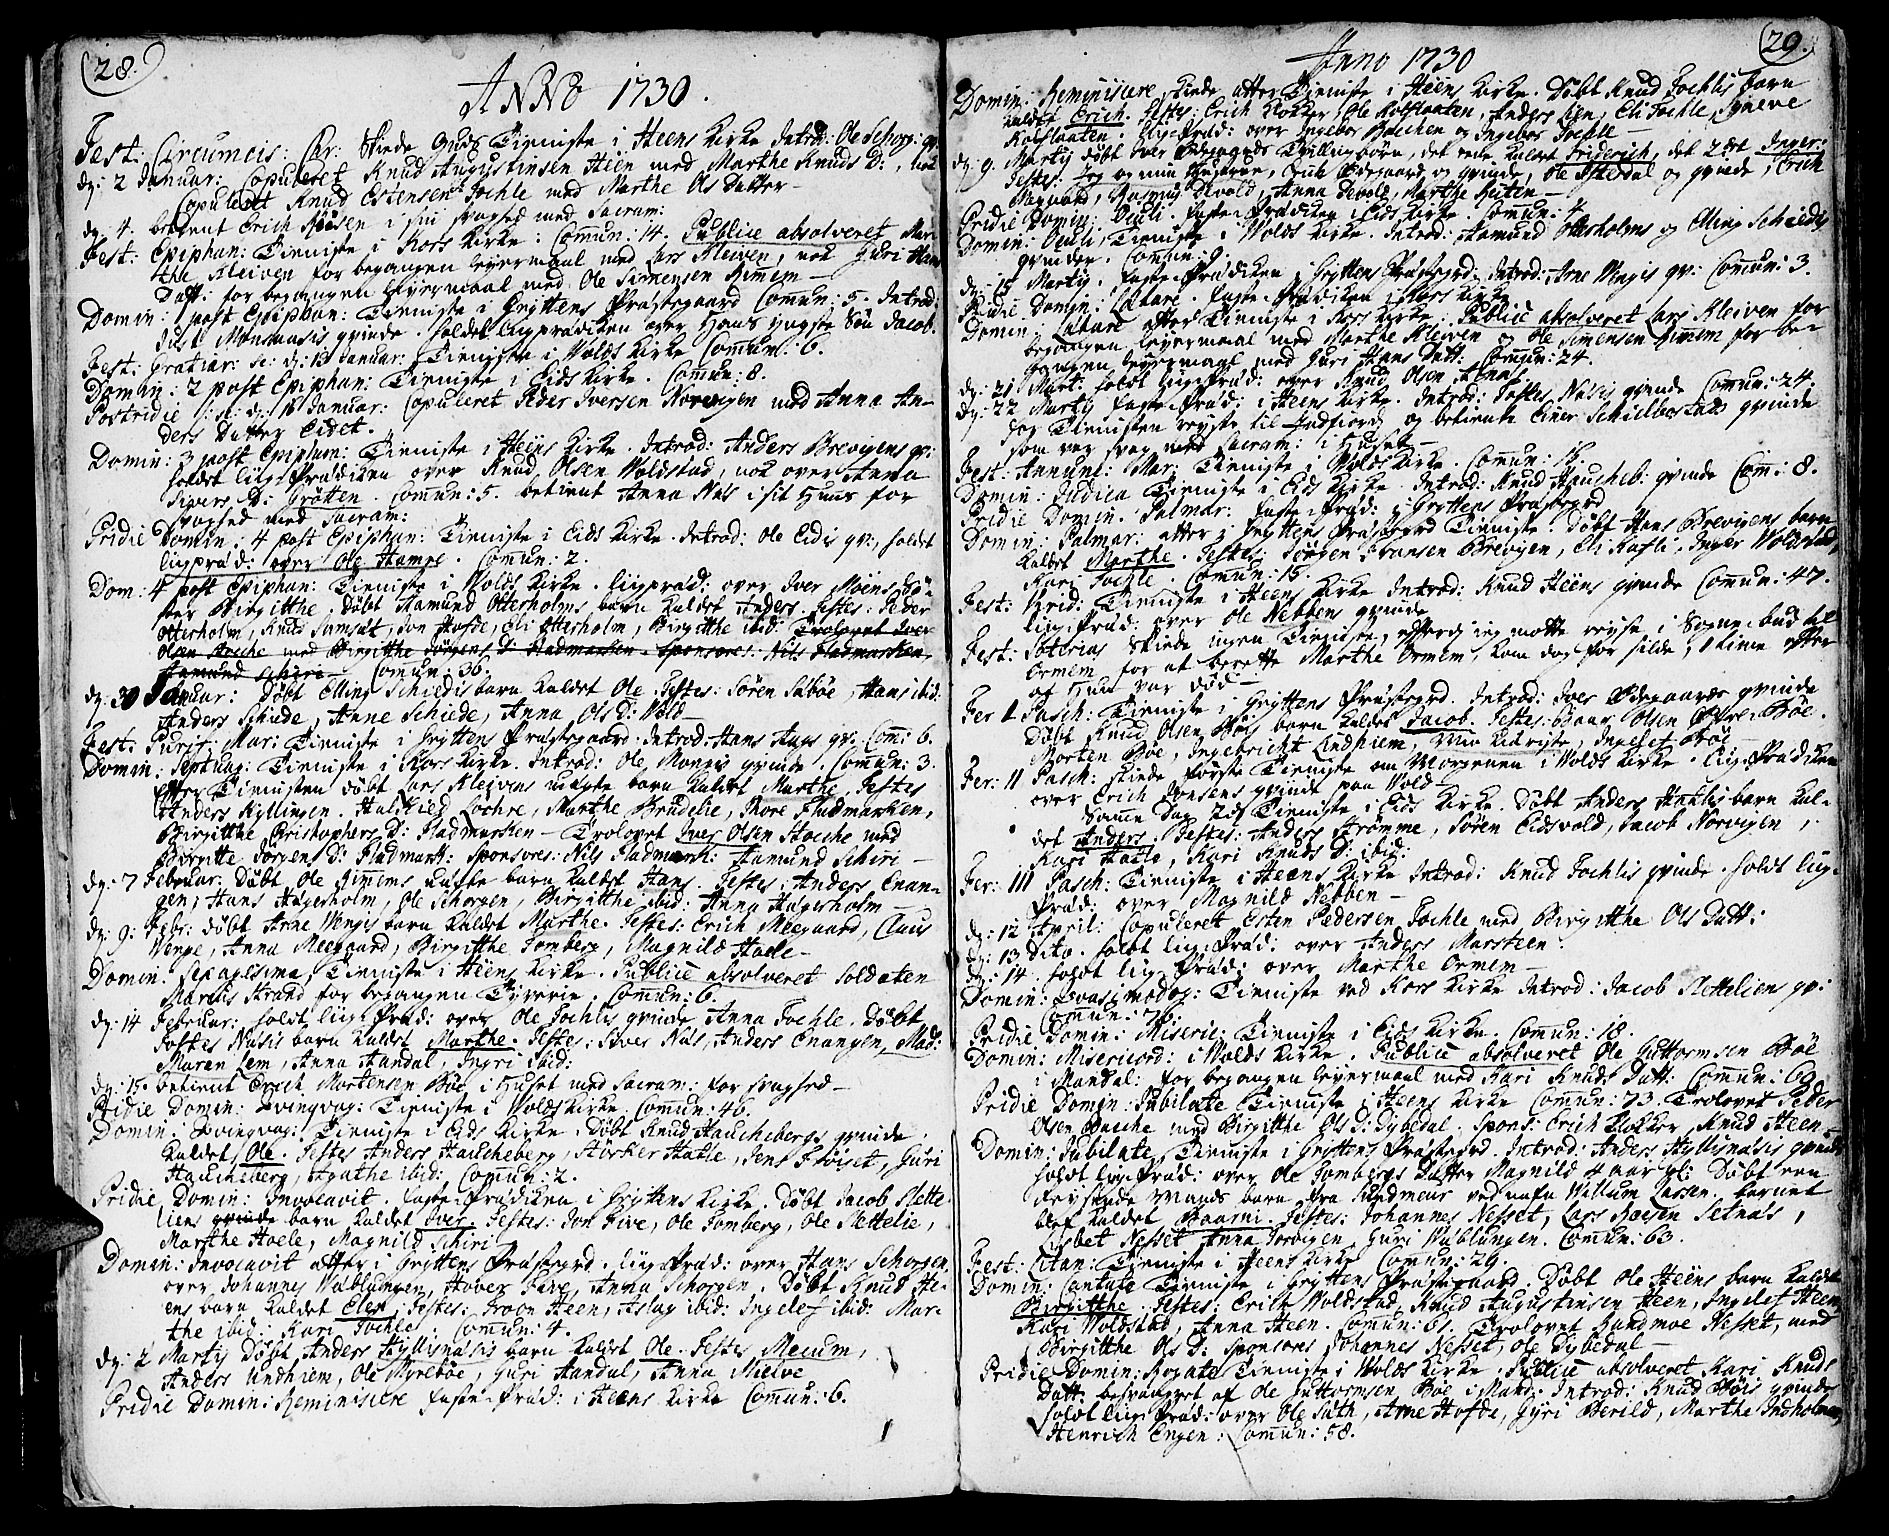 (28.)
ANNO 1730.
Fest: Circumcis: Chr: Skiede Guds Tieniste i Heens Kirke Introd: Ole Schorg: qv:
dy: 2 Januar: Copuleret Knud Augustinsen Heen med Marthe Knuds D:, nok
Copuleret Knud Estensen Tochle med Marthe Ols Datter—
dy: 4. betient Erich i sin svaghed med Sacram:
Fest: Epiphan: Tieniste i Kors Kirke: Comun: 14. Publice absolveret Mar-
the Kleiven for begangen leyermaal med Lars Kleiven, nok Guri Hans
Datt: for begangen leyermaal med Ole Simensen Rimem—
Domin: 1 post Epiphan: Tieniste i Gryttens Præstegaard Comun: 5. Introd:
Just Monsnasis qvinde. holdet liigprædiken over Hans yngste Søn Jacob.
Fest: Gratiar: sc: dy: 13 Januar: Tieniste i Wolds Kirke Comun: 6.
Domin: 2 post Epiphan: Tieniste i Eids Kirke. Comun: 8.
Postridie s: d: 16 Januar: Copuleret Peder Iversen Norvigen med Anna An-
ders Datter Eidet.
Domin: 3 post Epiphan: Tieniste i Heens Kirke. Introd: Anders Brevigens qv:
holdet liig Prædiken over Knud Olsen Woldstad, nok over Anna
Sivers D: Grøtten. Comun: 5. betient Anna Næs i sit Huus for
svaghed med Sacram:
Pridie Domin: 4 post Epiphan: Tieniste i Eids Kirke. Introd: Ole Eidis qv:, holdet
liigpræd: over Ole Stampe. Comun: 2.
Dom: 4 post Epiphan: Tieniste i Wolds Kirke. liigpræd: over Iver Moens
Birgitthe. Døbt Aamund Otterholms barn kaldet Anders. Testes: Peder
Otterholm, Knud Sumsæt, Jon Hofde, Eli Otterholm, Birgitthe ibid: Trolovet Iver
Olsen Stocche med Birgitthe Jørgens D: Fladmarken. Sponsores: Nils Fladmarken,
Aamund Schiri— Comun: 36.
dy: 30 Januar: Døbt Elling Schiedis barn kaldet Ole. Testes: Søren Sæbøe, Hans ibid:
Anders Schiede, Anne Schiede, Anna Ols D: Wold—
Fest: Purif: Mar: Tieniste i Gryttens Præstegaard. Introd: Hans Hags qv: Com: 6.
Domin: Septuag: Tieniste i Kors Kirke. Introd: Ole Mongis qvinde. Comun: 3.
efter Tienisten døbt Lars Kleivens uægte barn kaldet Marthe. Testes
Anders Kyllingen. Halchied Lochre, Marthe Brudelie, Thore Fladmarken,
Birgitthe Christophers D: Fladmarken— Trolovet Iver Olsen Stocche med
Birgitte Jørgens D: Fladmark: Sponsores: Nils Fladmark: Aamund Schiri—
dy: 7 Februar: Døbt Ole Rimmems uægte barn kaldet Hans. Testes: Anders Enan-
gen, Hans Hagerholm, Ole Schorgen, Birgitthe ibid: Anna Hagerholm—
dy: 9: Febr: Døbt Arne Wengis barn kaldet Marthe. Testes: Erich Meegaard, Claus
Wenge, Anna Meegaard, Birgitthe Tomberg, Magnild Hoele—
Domin. Sexagesima, Tieniste i Heens Kirke. Publice absolveret Soldaten
Marchis Strand for begangen Tyverie. Comun: 6.
dy: 14 Februar: holdt liig Præd: over Ole Tochlis qvinde Anna Tochle. Døbt
Tostes Næsis barn kaldet Marthe. Testes: Iver Næs, Anders Enangen, Mad:
Maren Lem, Anna Aandal, Ingri ibid:
dy: 15. betient Erich Mortensen Bøe i Huset med Sacram: for svaghed—
Pridie Domin: Qvinqvag: Tieniste i Wolds Kirke. Comun: 46.
Domin: Qvinqvag: Tieniste i Eids Kirke. Døbt Knud Hauchebergs qvinde
kaldet Ole. Testes Anders Hauckeberg, Størker Hatle, Jens Frøiset, Guri
Haucheberg, Agathe ibid: Comun: 2.
Pridie Domin: Invocavit. faste-Prædiken i Gryttens Kirke. Døbt Jacob Slette-
liens qvinde barn kaldet Iver. Testes: Jon Five, Ole Tomberg, Ole Slettelie,
Marthe Hoele, Magnild Schiri
Domin: Invocavit atter i Gryttens Præstegrd. liig Præd: over Hans Schorgen
over Johannes Wæblungen, Haver Fare, Anna Schorgen. Døbt Knud He-
ens barn kaldet Elen. Testes: Troon Heen, Aslag ibid: Ingelef ibid: Mar-
the ibid: Kari Tochle. Comun: 4.
dy: 2 Martij Døbt Anders Hyllisnæsis barn kaldet Ole. Testes Mecum,
Anders Undhiem, Ole Myrebøe, Guri Aandal, Anna Mielve—
Pridie Domin: Reminiscere faste-Præd: i Heens Kirke Comun: 6.
(29.)
Anno 1730
Domin: Reminiscere skiede atter Tieniste i Heens Kirke. Døbt Knud Tochlis barn
kaldet Erich. Testes: Erich Klokker, Ole Kolflaaten, Anders Lien, Eli Tochle, Syneve
Kolflaaten. liig-Præd: over Ingebor Bacchen og Ingebor Tochle—
dy: 9. Martij døbt Iver Ødegaards Tvillingbørn, det eene kaldet Friderich, det 2det Inger:
Testes: Jeg og min Hustrue, Erich Ødegaard og qvinde, Ole Isterdal og qvinde, Erich
Rasmus Devold, Anna Devold, Marthe Heiten—
Pridie Domin: Oculi. faste-Prædiken i Eids Kirke. Comun: 4.
Domin: Oculi, Tieniste i Wolds Kirke. Introd: Aamund Otterholms og Elling Schiedis
qvinder. Comun: 9.
dy: 15 Martij. faste-Prædiken i Gryttens Præstegrd. Introd: Arne Wengis qv: Comun: 3.
Pridie Domin: Lætare. faste-Prædiken i Kors Kirke.
Domin: Lætare atter Tieniste i Kors Kirke. Publice absolveret Lars Kleiven for
begangen leyermaal med Marthe Kleiven og Ole Simensen Rimem for be-
gangen leyermaal med Guri Hans Datt: Comun: 24.
dy: 21 Mart: holdt liig Præd: over Knud Olsen Aanæs
dy: 22 Martij faste-Præd: i Heens Kirke. Introd: Tostes Næsis qvinde Comun: 24.
for Tienisten reyste til Indfiord og betiente Einer Schielbostads qvinde
som var svag med Sacram: i Huset—
Fest: Annunc: Mar: Tieniste i Wolds Kirke. Comun: 16.
Domin: Judica Tieniste i Eids Kirke. Introd: Knud Haucheb: qvinde Com: 8.
Pridie Domin. Palmar: faste-Præd: i Gryttens Præstegrd
Domin: Palmar: atter i Gryttens Præstegrd Tieniste. Døbt Hans Brevigens barn
kaldet Marthe. Testes: Jørgen Fransen Brevigen, Eli Rafli, Inger Woldstad,
Kari Tochle. Comun: 15.
Fest: Virid: Tieniste i Heens Kirke Introd: Knud Heens qvinde Comun: 47.
liig-Præd: over Ole Nebbens qvinde
Fest: Soterias skiede ingen Tieniste, efterdi ieg motte reyse i Sogne bud til
Ormem for at berette Marthe Ormem, kom dog for silde, 1 time efter
at Hun var død—
Fer I Pasch: Tieniste i Gryttens Præstegrd. Introd: Ivers Ødegaards qvinde
Døbt Knud Olsen Bøis barn kaldet Jacob. Testes: Baar Olsen Øfre-Bøe.
Morten Bøe, Ingebricht Lindhiem, Min Kidriste, Ingelef Bøe—
Fer: II Pasch: skiede første Tieniste om Morgenen i Wolds Kirke. liig-Prædiken
over Erich Jensens qvinde paa Wold—
Samme Dag 2den Tieniste i Eids Kirke. Døbt Anders Hatlis barn kal-
det Anders. Testes: Anders Strømme, Søren Eidsvold, Jacob Norvigen,
Kari Hatle, Kari Knuds D: ibid:
Fer: III Pasch: Tieniste i Heens Kirke Introd: Knud Tochlis qvinde. holdt liig-
Præd: over Magnild Nebben—
dy: 12 April: Copuleret Esten Pedersen Tochle med Birgitthe Ols Datt:
dy: 13 Dito. holdt liig-Præd: over Anders Marsteen.
dy: 14. holdt liig-Præd: over Marthe Ormem—
Domin: Qvasimodog: Tieniste ved Kors Kirke Introd: Jacob Slettelies qv:
Comun: 76.
Pridie Domin: Miseric: Tieniste i Eids Kirke. Comun: 18.
Domin: Misericord: i Wolds Kirke. Publice absolveret Ole Guttormsen Bøe
i Mandal: for begangen leyermaal med Kari Knuds Datt: Comun: 69.
Pridie Domin: Jubilate Tieniste i Heens Kirke Comun: 73. Trolovet Peder
Olsen Bacche med Birgitthe Ols D: Dybedal. Spons: Erich Klokker, Knud Heen—
Domin: Jubilate, Tieniste i Gryttens Præstegrd. Introd: Anders Hyllisnæsis qvinde
holdt liig-Præd: over Ole Tombergs Datter Magnild 4 aar gl: Døbt een
reysende Mands barn fra Sundmøer ved nafn Willum Lassen. barnet
blef kaldet Baarni. Testes: Johannes Nesset, Lars Setnæs,
Lisbet Nesset Anna Torvigen, Guri Wæblungen. Comun: 63.
Fest: Litan: Tieniste i Heens Kirke Comun: 29.
Domin: Cantate Tieniste i Gryttens Præstegaard. Døbt Ole Heens barn kaldet
Birgitthe. Testes: Erich Woldstad, Knud Augustinsen Heen, Ingelef Heen,
Kari Woldstad, Anna Heen. Comun: 61. Trolovet Sandmoe Nesset, med
Birgitthe Ols D: Sponsores Johannes Nesset, Ole Dybedal—
Pridie Domin: Rogate Tieniste i Wolds Kirke. Publice absolveret Kari Knuds
Datt: besvangret af Ole Guttormsen Bøe i Mand: Introd: Knud Bøis qvinde
holdt liig-Præd: over Ole Sæth, Arne Hofde, Gyri Berild, Marthe Indholmen,
Henrich Engen: Comun: 58.